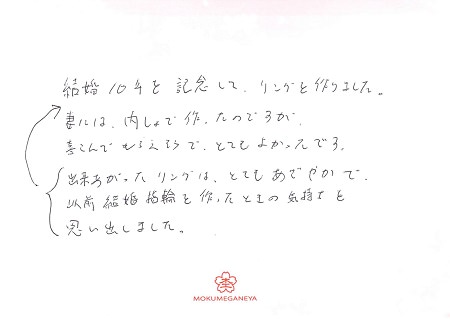 結婚10年を記念して、リングを作りました。
妻には、内しょで作ったのですが、
喜こんでもらえそうで、とてもよかったです。
出来あがったリングは、とてもあでやかで、
以前結婚指輪を作ったときの気持ちを
思い出しました。
MOKUMEGANEYA